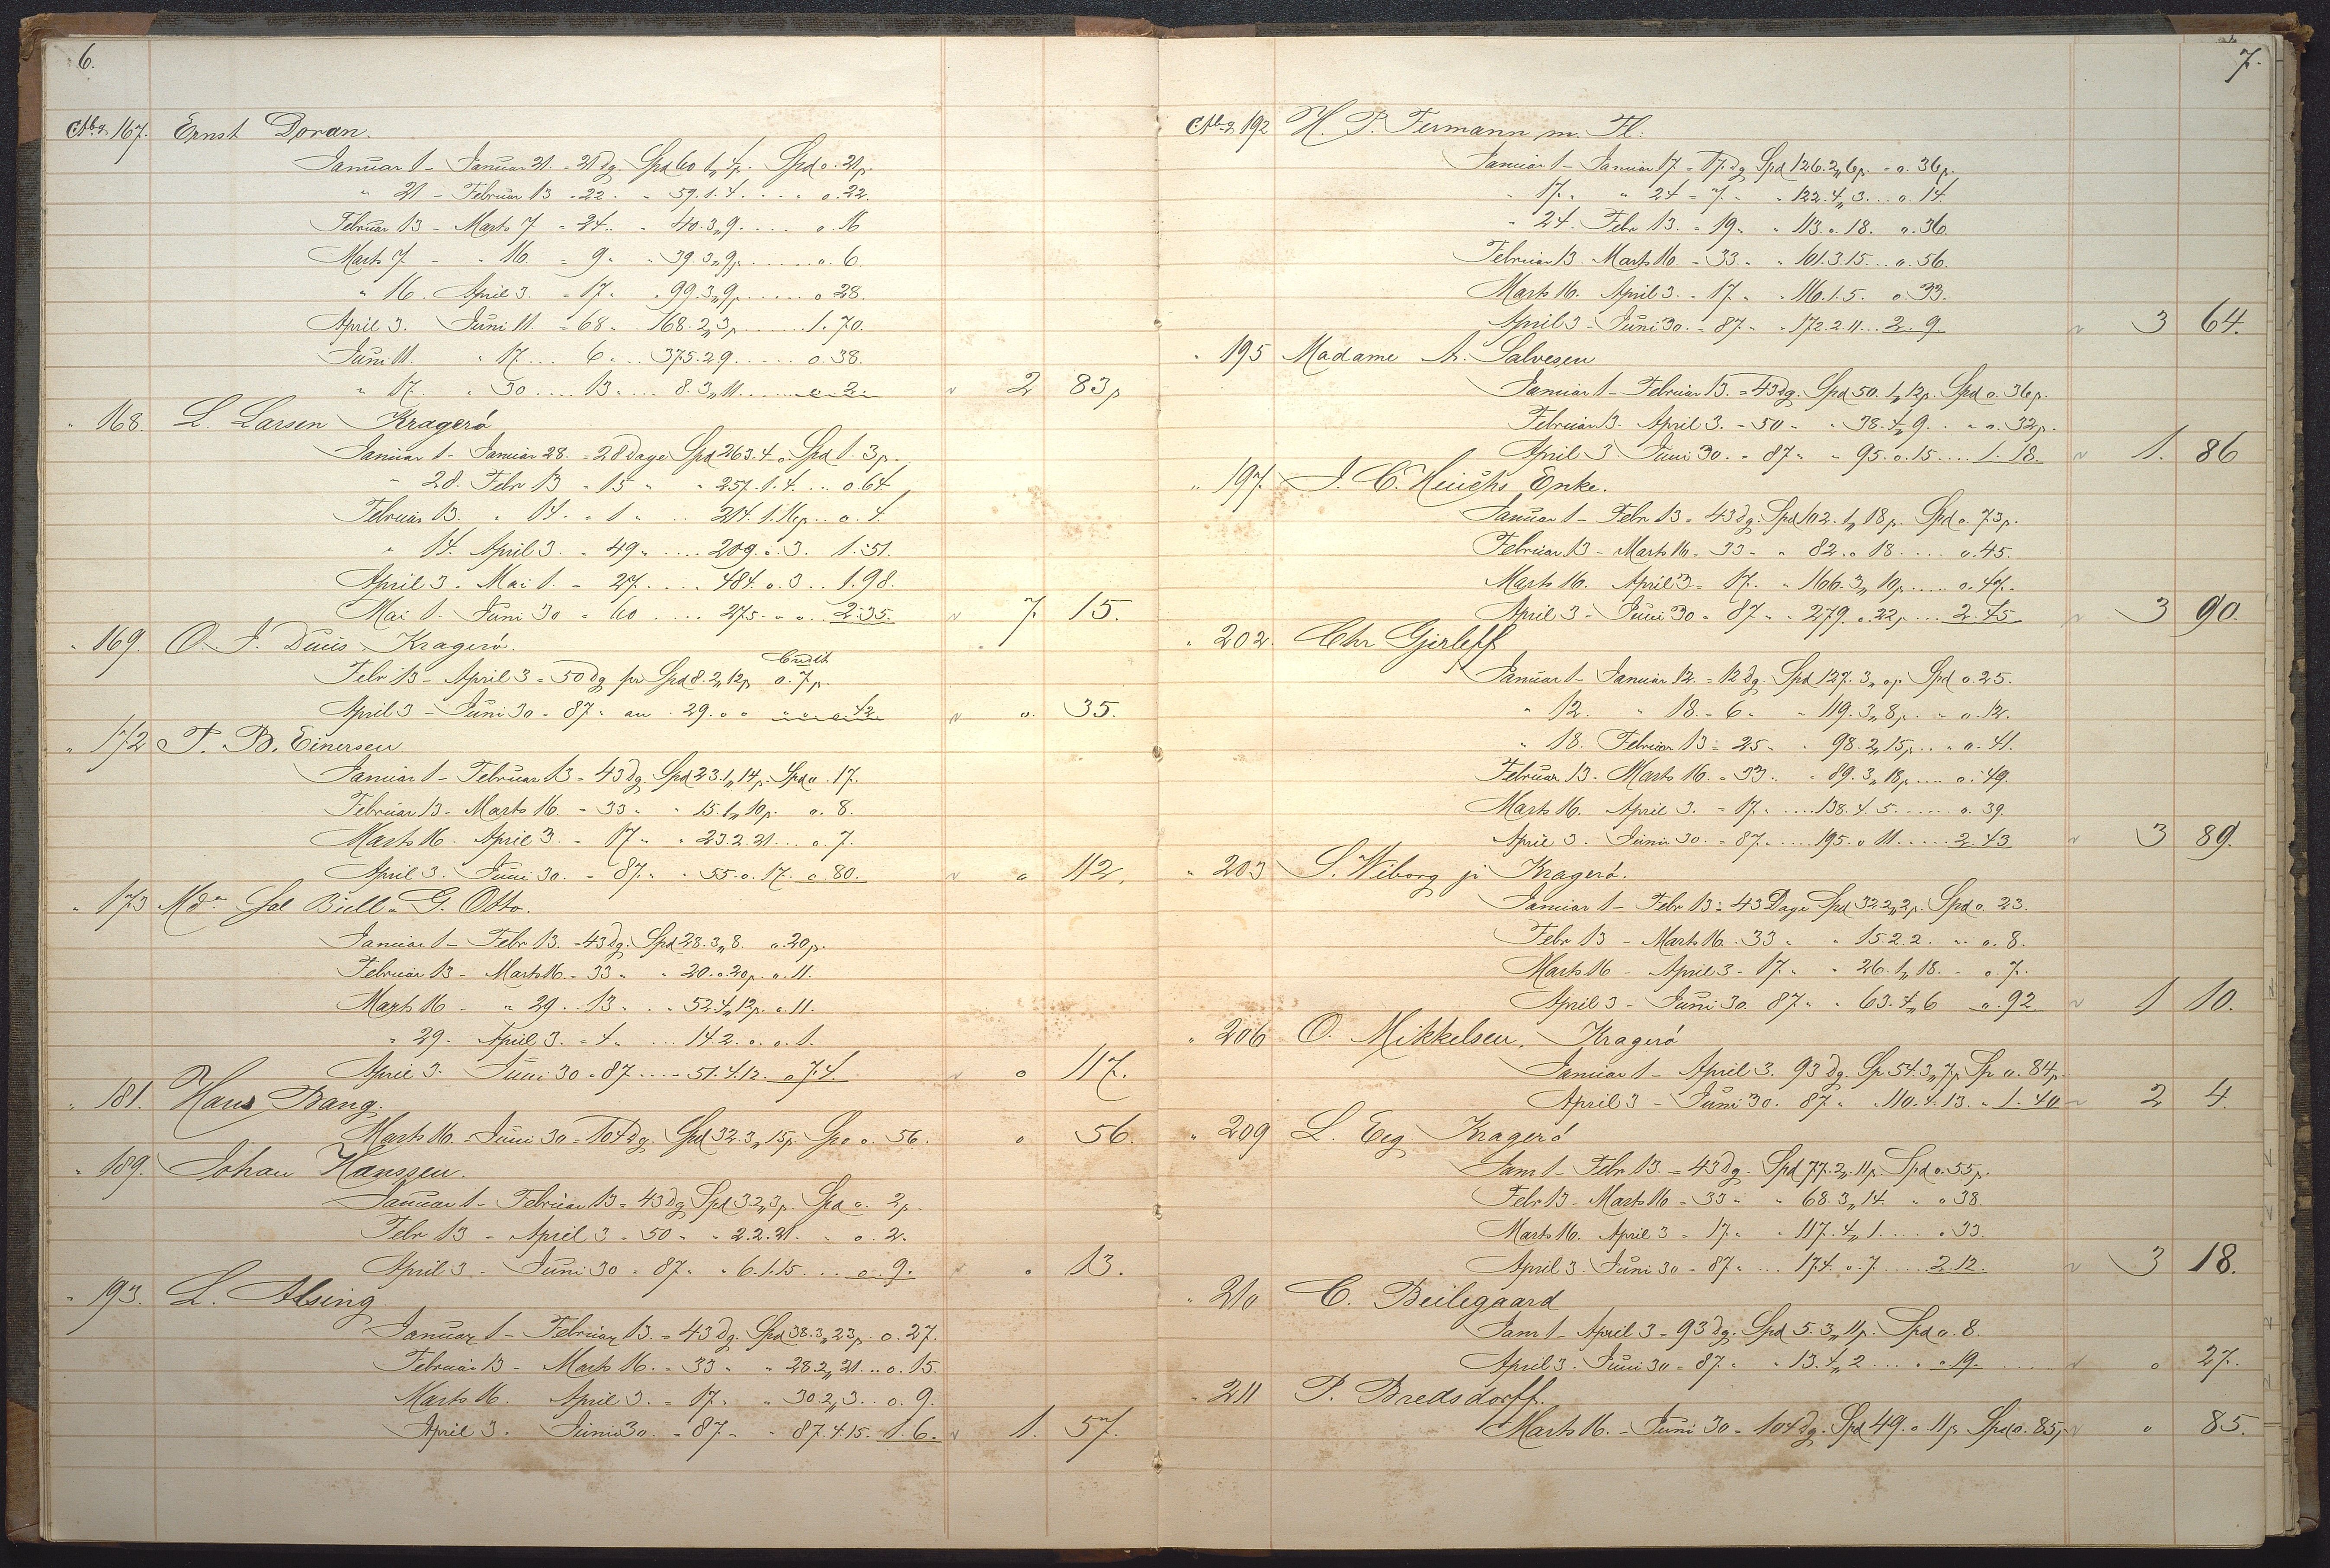 6.
Cto 2 167. Ernst Doran.
Januar 1 - Januar 21. = 21 dg. Spd 60 1„ 4p. Spd o. 21p.
" 21 - Februar 13 = 22 " " 59. 1. 4. . . . " o. 22.
Februar 13 - Marts 7 = 24. " 40. 3„ 9. . . . . o. 16
Marts 7 - " 16. = 9 " " 39. 3„ 9p. . . . . . o. 6.
" 16. April 3. = 17 " " 99. 3„ 9p. . . . . o 28.
April 3. Juni 11. = 68 " . 168. 2„ 3p. . . . . . . 1. 70.
Juni 11. " 17. . . . 6 . . . 375. 2. 9. . . . . . o. 38.
" 17. " 30 . . . . . 13 . . . . 8. 3„ 11. . . . . . o 2. 2 83p
" 168. L. Larsen Kragerö
Januar 1 - Januar 28. = 28 Dage Spd 263. 4. o. Spd 1. 3p.
" 28. Febr 13 = 15 " " 257. 1. 4. . . o. 64
Februar 13. " 14. = 1 " . . 214. 1. 16p. . o. 4.
" 14. April 3. = 49 " . . . . 209. o. 3. 1. 51.
April 3 - Mai 1. = 27. . . . . 484. o. 3. . 1. 98.
Mai 1. Juni 30 = 60 . . . . 275 - " o. . 2. 35. 7. 15.
" 169. O. J. Duus Kragerö.
Credit
Febr 13 - April 3 = 50 dg pr Spd 8. 2„ 12p o. 7p.
April 3 - Juni 30 = 87 " an . 29. o o 42 o. 35.
" 172 T. B. Einersen
Januar 1 - Februar 13 = 43 dg. Spd 23. 1„ 14p. Spd o. 17.
Februar 13 - Marts 16 = 33 " " 15. 1„ 10p. o. 8.
Marts 16. April 3. = 17 " " 23. 2. 21 . . . o. 7.
April 3. Juni 30. = 87. " " 55. o. 17. o. 80. o 112.
" 173 Md. Sal Büll - G. Otto.
Januar 1 - Febr 13. = 43 dg. Spd 28. 3„ 8. o. 20p.
Februar 13 - Marts 16. = 33 " " 20. o. 20p. o. 11.
Marts 16 - " 29. . 13 " . . 52. 4„ 12p. o. 11.
" 29. April 3. = 4 " . . . 14. 2. o. o. 1.
April 3. Juni 30 = 87 . . . . 51. 4. 12. o 74. o 117.
" 181. Hans Bang.
Marts 16. - Juni 30 = 104 dg. Spd 32. 3„ 15p. Spd o. 56. o 56.
" 189. Johan Hanssen.
Januar 1 - Februar 13 = 43 dg Spd 3. 2„ 3p. Spd o. 2p.
Febr 13 - April 3 = 50 " " 2. 2. 21. " o. 2.
April 3 - Juni 30 = 87 " " 6. 1. 15. . . o. 9. o 13.
" 193. L. Alsing
Januar 1 - Februar 13. = 43 dg. Spd 38. 3„ 23p. o. 27.
Februar 13 - Marts 16. = 33 " " 28. 2„ 21. . . o. 15.
Marts 16. April 3. = 17. " " 30. 2„ 3. . . o. 9.
April 3. Juni 30. = 87 " " 87. 4. 15. 1. 6. 1. 57.
7.
Cto 2 192 H. P. Fermann m. Fl.
Januar 1 - Januar 17. = 17. dg Spd 126. 2„ 6p. = o. 36p.
" 17. " 24 = 7. " " 122. 4„ 3. . . o. 14.
" 24. Febr 13. = 19 " " 113. o. 18. o. 36
Februar 13. Marts 16 = 33. " " 101. 3. 15. . . o. 56.
Marts 16. April 3. = 17. " " 116. 1. 5. o. 33.
April 3 - Juni 30. = 87 " " 172. 2. 11. . . 2. 9. 3 64.
" 195 Madame A. Salvesen
Januar 1 - Februar 13. = 43 dg. Spd 50. 1„ 12p. Spd o. 36p.
Februar 13. April 3. = 50 " " 38. 4„ 9. . " o. 32p.
April 3 Juni 30. = 87 " " 95. o. 15 . . . . 1. 18. 1. 86
" 197. J. C. Heuchs Enke.
Januar 1 - Febr 13 = 43 dg. Spd 102. 1„ 18p. Spd o. 73p.
Februar 13 - Marts 16 = 33 " " 82. o 18. . . . o. 45.
Marts 16. April 3 = 17. " " 166. 3„ 10p. . . . o. 47.
April 3 - Juni 30 = 87 " " 279. o. 22p. . . . 2. 45 3 90.
" 202. Chr Gjerleff
Januar 1 - Januar 12. = 12 dg. Spd 127. 3„ op. Spd o. 25.
" 12. " 18. = 6 " " 119. 3„ 8p. " o. 12.
" 18. Februar 13 = 25 " " 98. 2„ 15p. . . " o. 41.
Februar 13. Marts 16. = 33. " " 89. 3„ 18p. . . . o. 49.
Marts 16. April 3. = 17. " . . . . 138. 4. 5. . . . . . o. 39.
April 3. Juni 30. = 87. . . . . 195. o 11. . . . . 2. 43 3 89.
" 203 S. Wiborg jr Kragerö.
Januar 1 - Febr 13 = 43 Dage Spd 32. 2„ 2p. Spd o. 23.
Febr 13 - Marts 16. 33 " " 15. 2. 2. " . o. 8.
Marts 16 - April 3 - 17. " " 26. 1„ 18. - o. 7.
April 3 - Juni 30. 87 " " 63. 4„ 6 o. 92 1 10.
" 206 O. Mikkelsen, Kragerö
Januar 1 - April 3. 93 dg. Sp. 54. 3„ 7p Sp o. 84p.
April 3 - Juni 30. 87 " " 110. 4. 13. " 1. 40 2 4.
" 209 L. Eeg. Kragerö
Janr 1 - Febr 13. = 43 dg. Spd 77. 2„ 11p. Spd o. 55p.
Febr 13 - Marts 16 = 33 " " 68. 3„ 14. " o 38.
Marts 16. April 3 = 17. " " 117. 4„ 1. . . . . o 33.
April 3. Juni 30 = 87 " . . . 174. o. 7. . . . . 2. 12. 3 18.
" 210 C. Beilegaard
Janr 1 - April 3 = 93 dg. Spd 5. 3„ 11p. Spd o. 8.
April 3. Juni 30 = 87. " " 13. 4„ 2 . . . . o 19. o 27.
" 211 P. Bredsdorff.
Marts 16. - Juni 30 = 104 dg. Spd 49. o 11p. Spd o. 85p o 85.